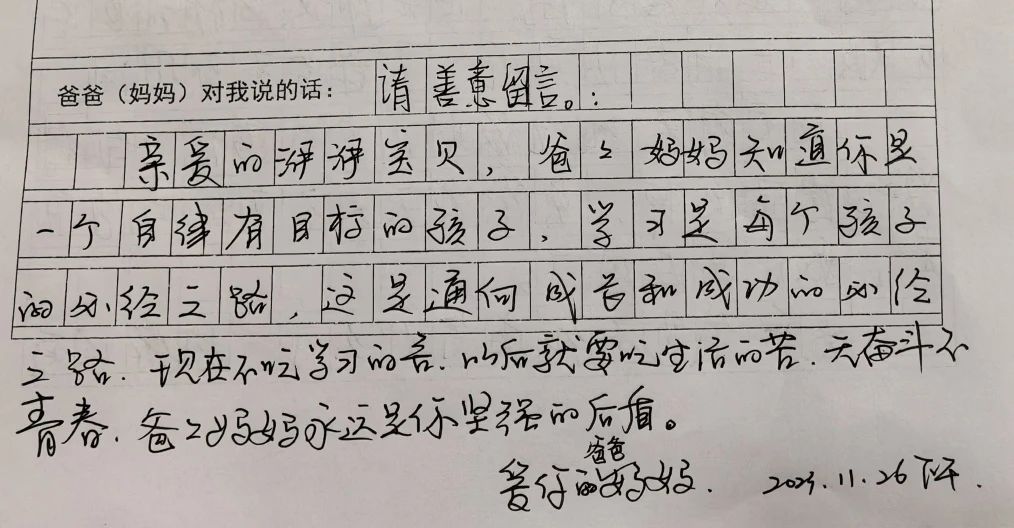 爸爸（妈妈）对我说的话：请善意留言。：
亲爱的洢洢宝贝，爸々妈妈知道你是
一个自律有目标的孩子，学习是每个孩子
的必经之路，这是通向成长和成功的必经
之路，现在不吃学习的苦，以后就要吃生活的苦，无奋斗不
青春，爸々妈妈永远是你坚强的后盾。
爱你的爸爸妈妈. 11.26